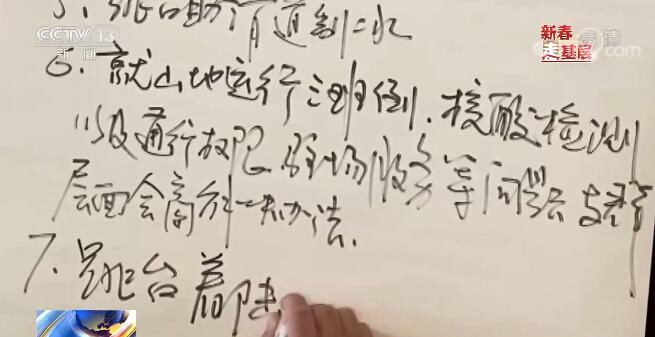 CCTV 13
新闻
新春
走基层
高清
5、跳台助滑道制冰
6、就山地运行过夜倒、核酸检测
以及通行权限、驻场服务等问题
层面会商统一办法.
7、跳台着陆